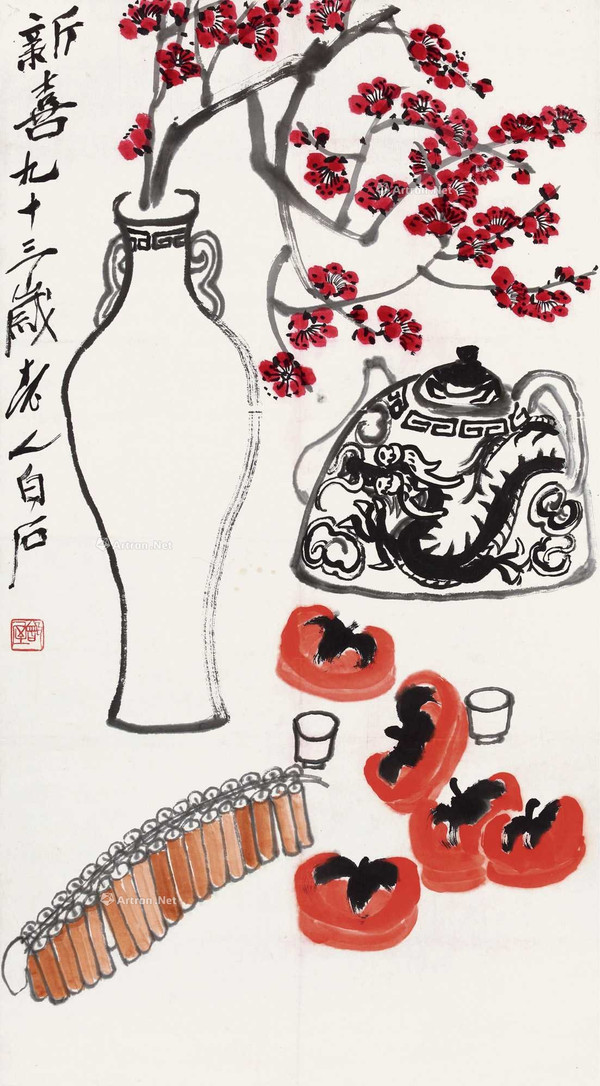 新喜九十三歲老人白石
Artron.Net
Artron.Net
Artron.Net